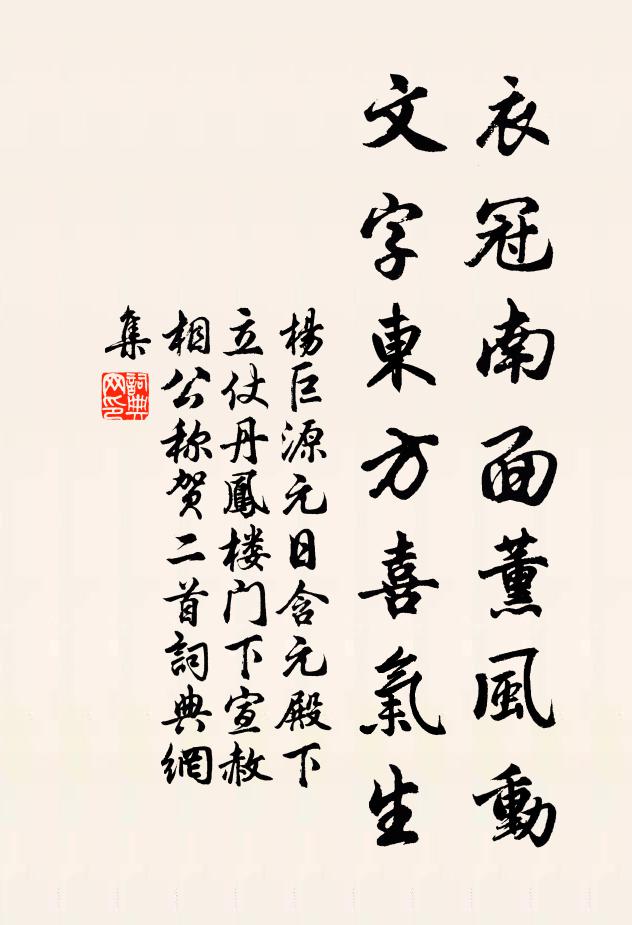 衣冠南面薰風動
文字東方喜氣生
楊巨源元日含元殿下
立仗丹鳳楼门下宣赦
相公称贺二首詞典網
集
詞典网印